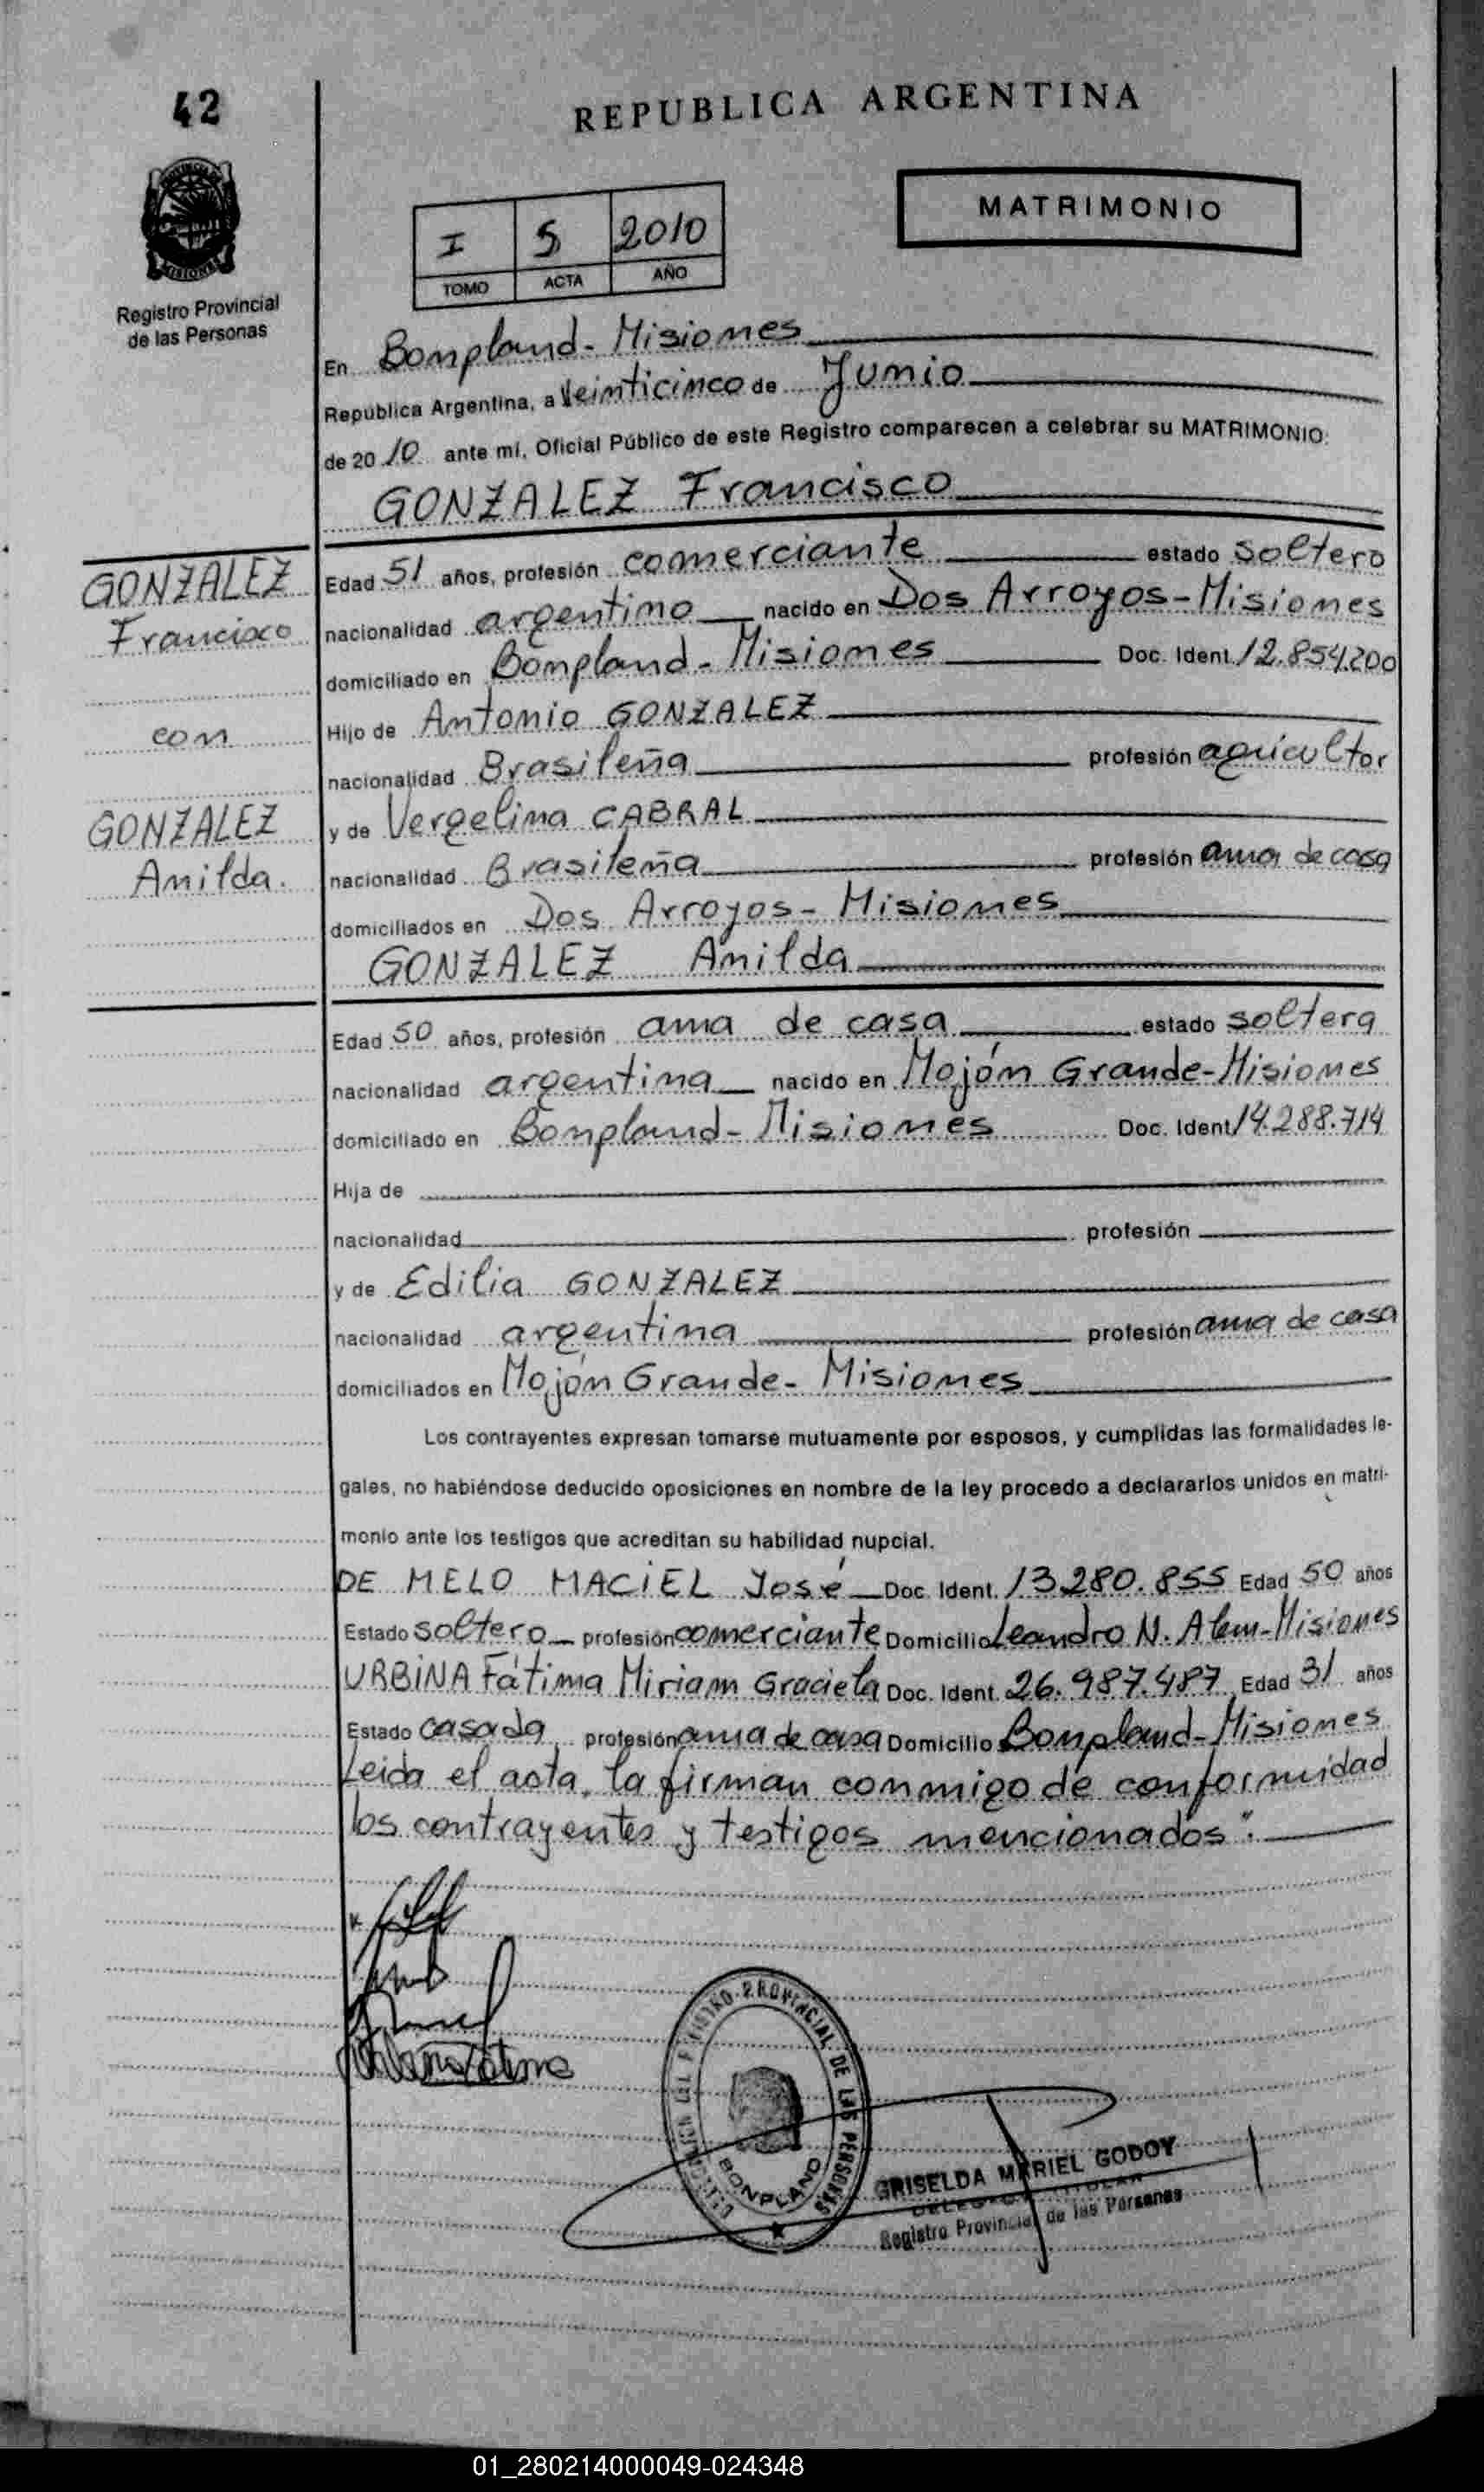 42
REPUBLICA ARGENTINA
PROVINCIA DE
MISIONES
Registro Provincial
de las Personas
MATRIMONIO
I 5 2010
TOMO ACTA AÑO
En Bompland - Misiones
República Argentina, a Veinticinco de Junio
de 2010 ante mí, Oficial Público de este Registro comparecen a celebrar su MATRIMONIO:
GONZALEZ Francisco
GONZALEZ
Francisco
con
GONZALEZ
Anilda.
Edad 51 años, profesión comerciante estado soltero
nacionalidad argentino nacido en Dos Arroyos - Misiones
domiciliado en Bompland - Misiones Doc. Ident. 12.854.200
Hijo de Antonio GONZALEZ
nacionalidad Brasileña profesión agricultor
y de Vergelina CABRAL
nacionalidad Brasileña profesión ama de casa
domiciliados en Dos Arroyos - Misiones
GONZALEZ Anilda
Edad 50 años, profesión ama de casa estado soltera
nacionalidad argentina nacido en Mojón Grande - Misiones
domiciliado en Bompland - Misiones Doc. Ident. 14.288.714
Hija de
nacionalidad profesión
y de Edilia GONZALEZ
nacionalidad argentina profesión ama de casa
domiciliados en Mojón Grande - Misiones
Los contrayentes expresan tomarse mutuamente por esposos, y cumplidas las formalidades le-
gales, no habiéndose deducido oposiciones en nombre de la ley procedo a declararlos unidos en matri-
monio ante los testigos que acreditan su habilidad nupcial.
DE MELO MACIEL José Doc. Ident. 13.280.855 Edad 50 años
Estado soltero profesión comerciante Domicilio Leandro N. Alem - Misiones
URBINA Fátima Miriam Graciela Doc. Ident. 26.987.487 Edad 31 años
Estado casada profesión ama de casa Domicilio Bompland - Misiones
Leida el acta, la firman conmigo de conformidad
los contrayentes y testigos mencionados".
PROVINCIAL DE LAS PERSONAS
BONPLAND
GRISELDA MARIEL GODOY
DELEGADA TITULAR
Registro Provincial de las Personas
01_280214000049-024348